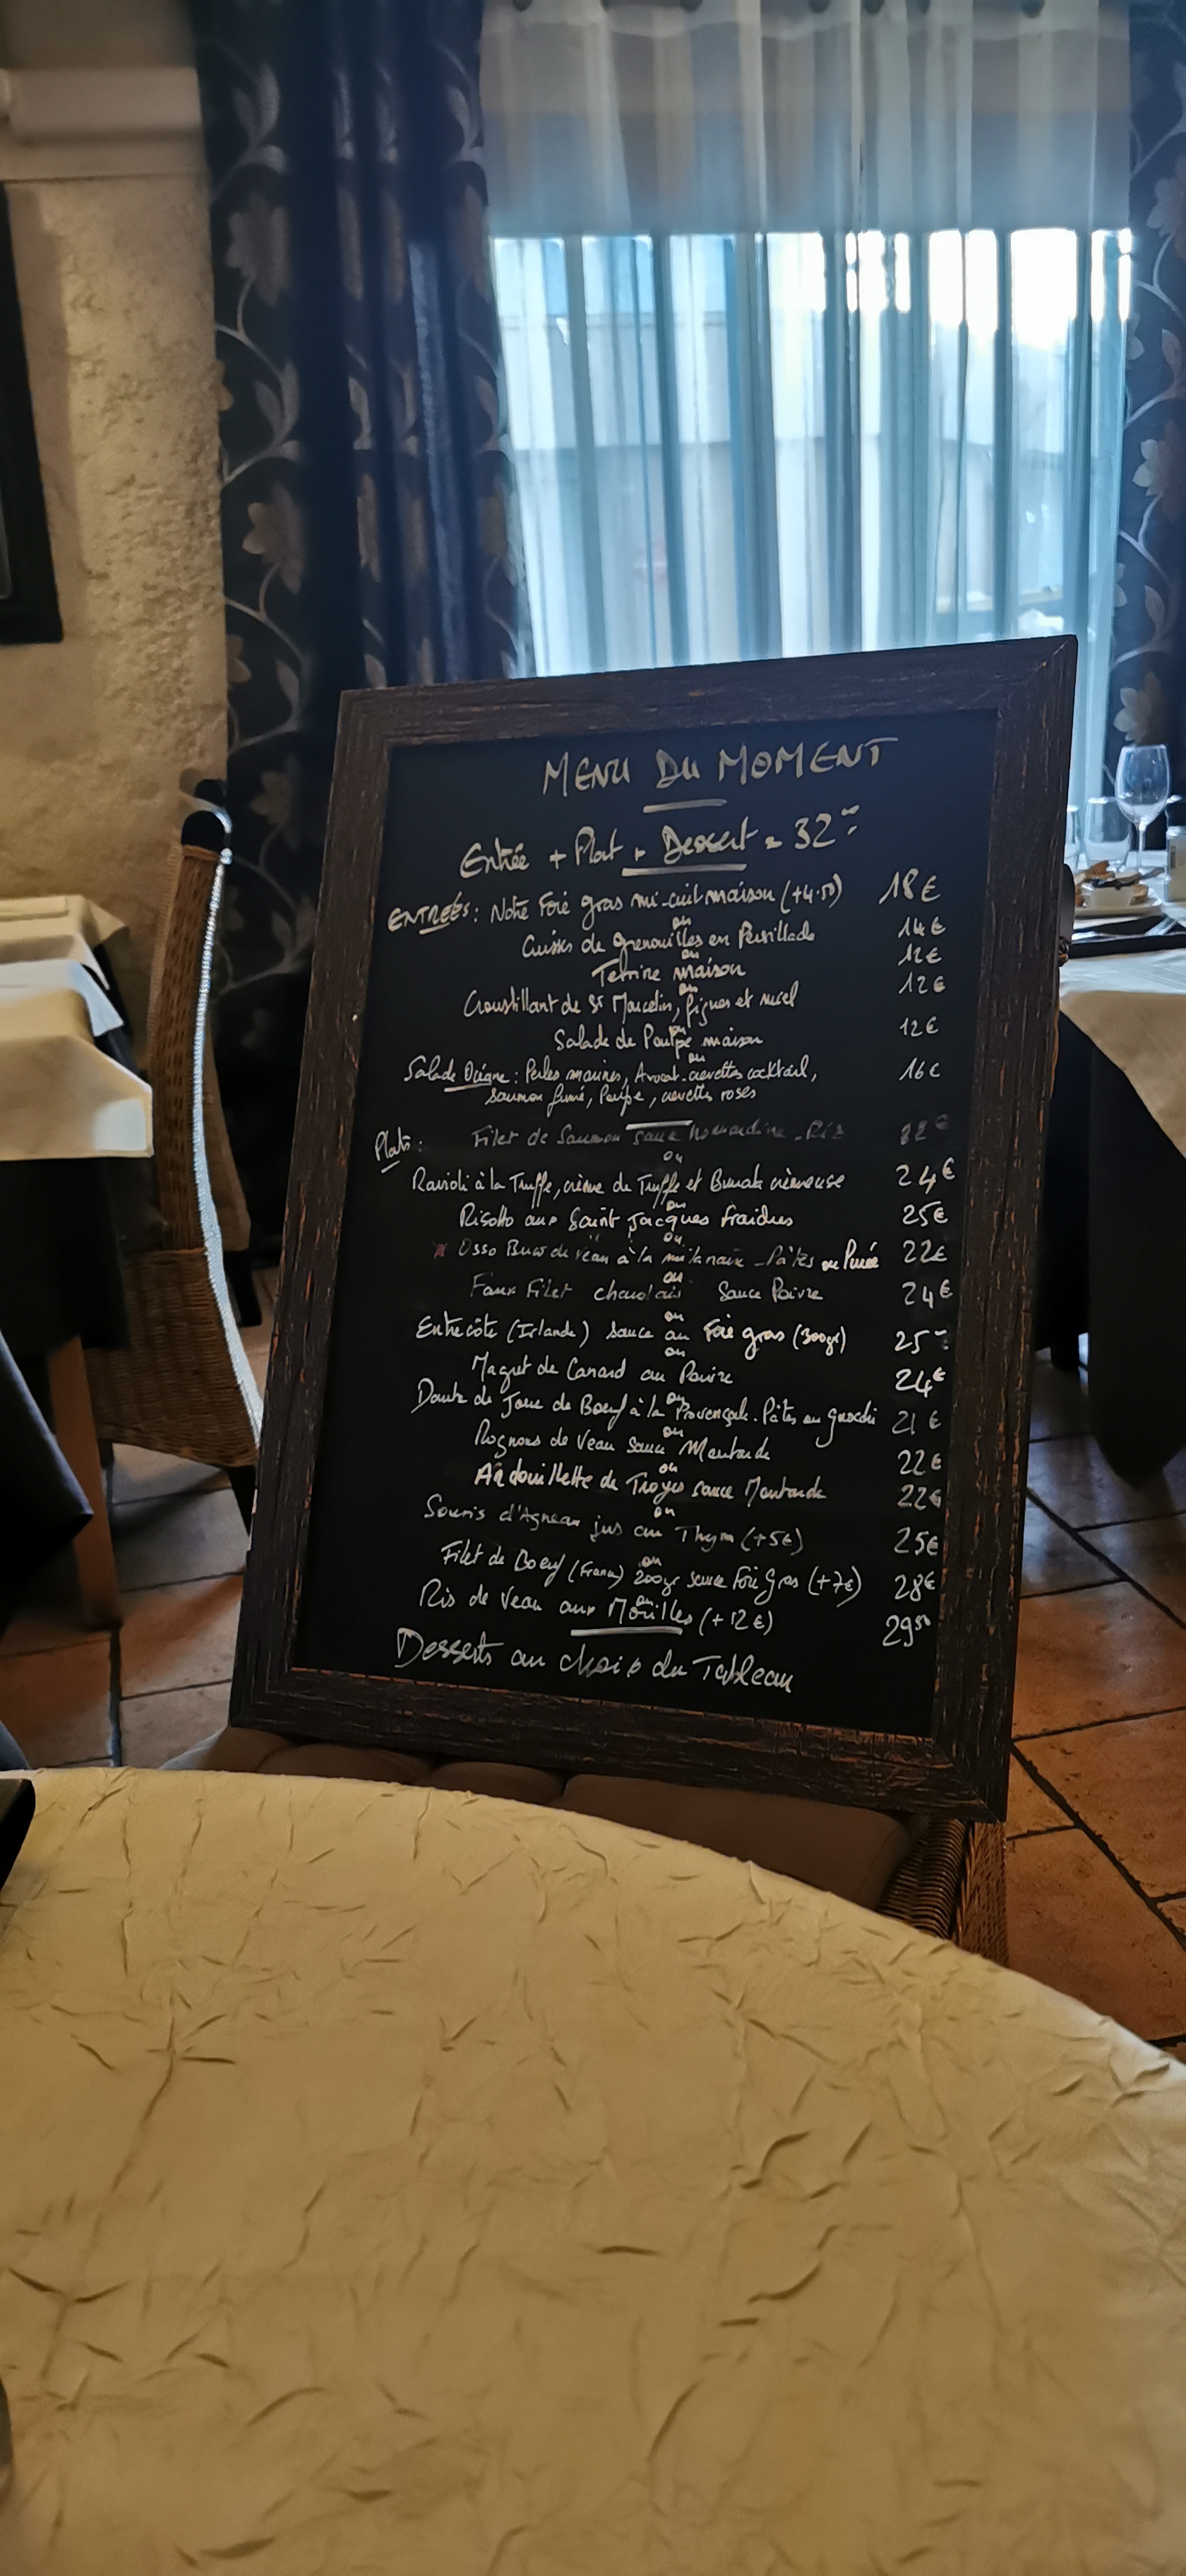 MENU DU MOMENT
Entrée + Plat + Dessert = 32
ENTREES: Notre Foie gras mi-cuit maison (+4.50) 18€
ou
Cuisses de grenouilles en Persillade 14€
ou
Terrine maison 12€
ou
Croustillant de St Marcelin, figues et miel 12€
ou
Salade de Poulpe maison 12€
ou
Salade : Perles marines, Avocat-crevettes cocktail, 16€
saumon fumé, Poulpe, crevettes roses
Plats: Filet de Saumon sauce Normandine - Riz 22€
ou
Ravioli à la Truffe, crème de Truffe et Burrata crèmeuse 24€
ou
Risotto aux Saint Jacques fraiches 25€
ou
Osso Buco de veau à la milanaise - Pâtes ou Purée 22€
ou
Faux Filet charolais Sauce Poivre 24€
ou
Entrecôte (Irlande) sauce au Foie gras (300gr) 25
ou
Magret de Canard au Poivre 24€
ou
Daube de Joue de Boeuf à la Provençale. Pâtes ou gnocchi 21€
ou
Rognons de Veau sauce Moutarde 22€
ou
Andouillette de Troyes sauce Moutarde 22€
ou
Souris d'Agneau jus au Thym (+5€) 25€
ou
Filet de Boeuf (France) 200gr sauce Foie Gras (+7€) 28€
ou
Ris de Veau aux Morilles (+12€) 2950
Desserts au choix du Tableau